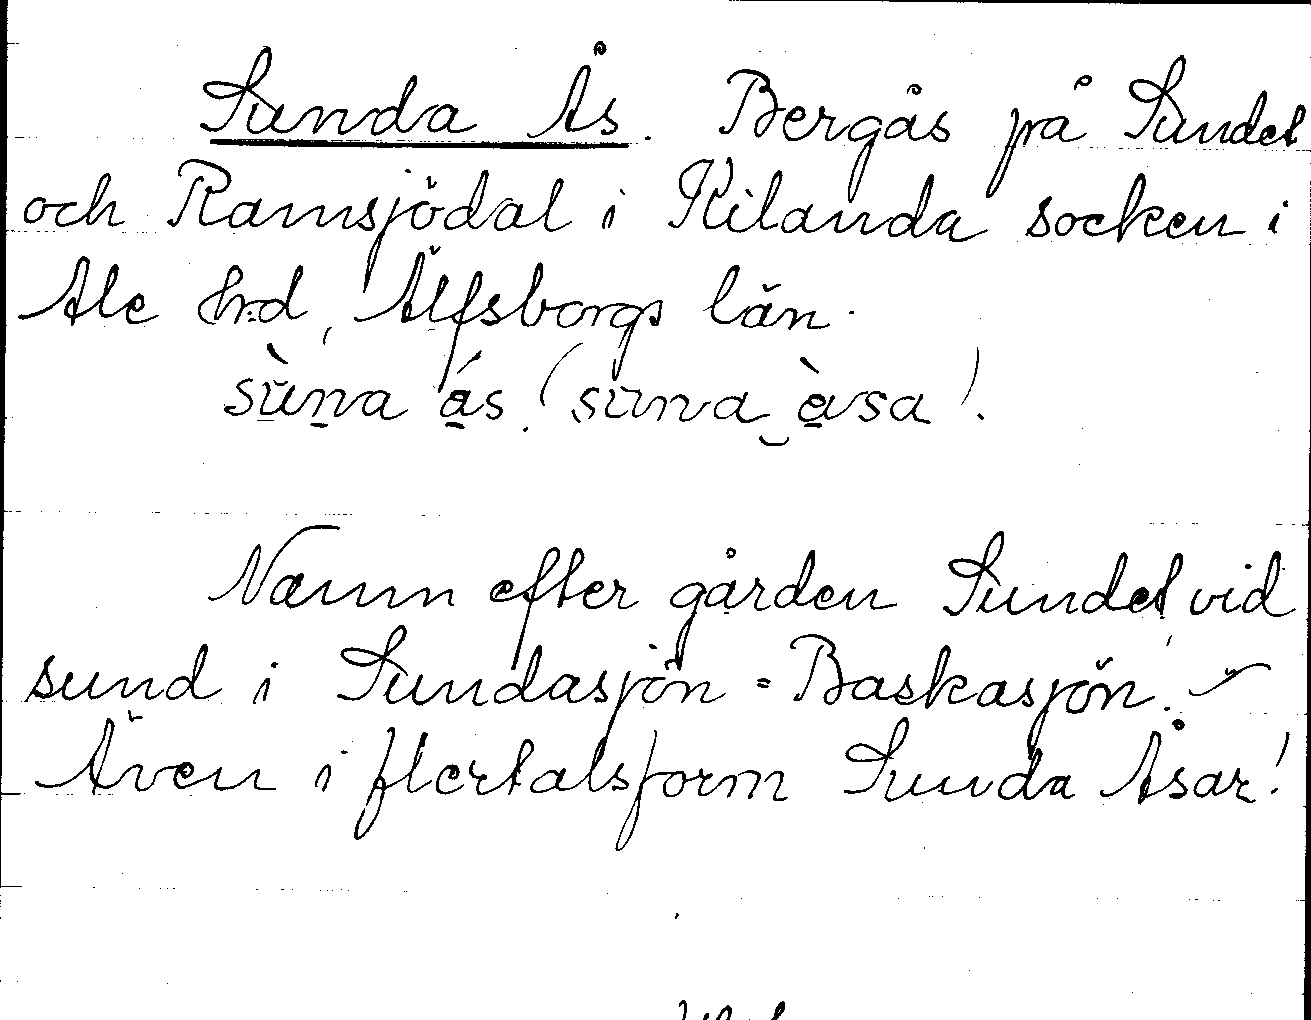 Sunda Ås. Bergås på Sundet
och Ramsjödal i Kilanda socken i
Ale hrd, Älfsborgs län.
sùna ás. (suna‿àsa).
Namn efter gården Sundet, vid
sund i Sundasjön = Baskasjön.
Även i flertalsform Sunda Åsar!